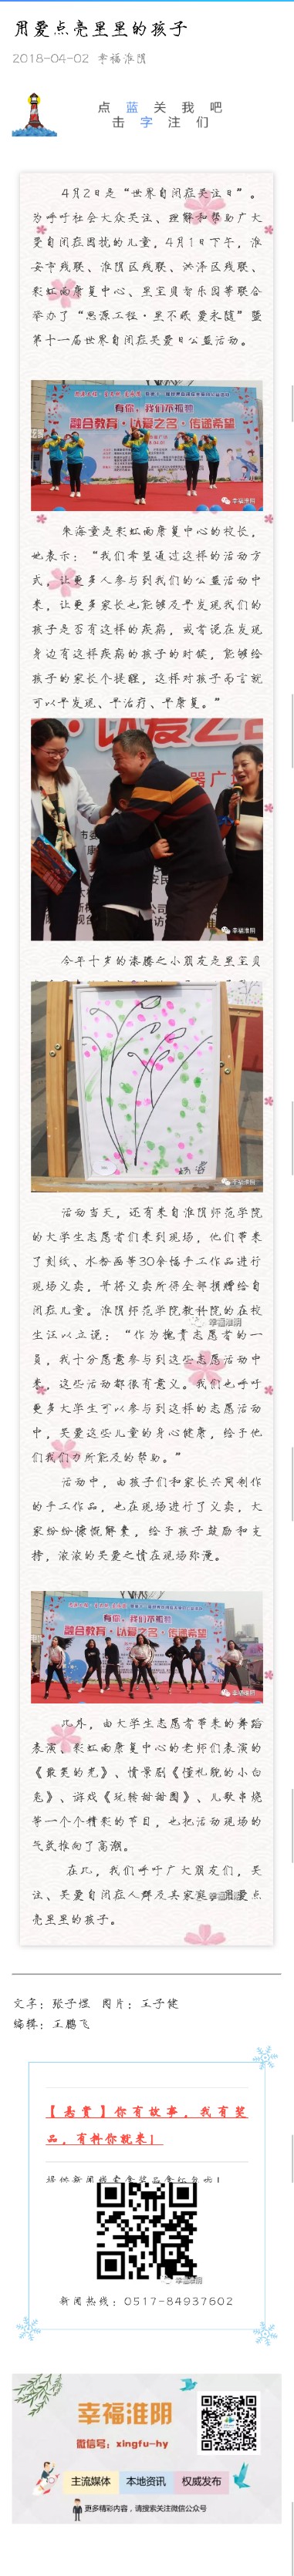 用爱点亮星星的孩子
2018-04-02 幸福淮阴
点击蓝字关注我们吧
4月2日是“世界自闭症关注日”。
为呼吁社会大众关注、理解和帮助广大
受自闭症困扰的儿童，4月1日下午，淮
安市残联、淮阴区残联、洪泽区残联、
彩虹雨康复中心、星宝贝智乐园等联合
举办了“思源工程·星不眠 爱永随”暨
第十一届世界自闭症关爱日公益活动。
有你，我们不孤独
融合教育·以爱之名·传递希望
幸福淮阴
朱海童是彩虹雨康复中心的校长，
她表示：“我们希望通过这样的活动方
式，让更多人参与到我们的公益活动中
来，让更多家长也能够及早发现我们的
孩子是否有这样的疾病，或者说在发现
身边有这样疾病的孩子的时候，能够给
孩子的家长个提醒，这样对孩子而言就
可以早发现、早治疗、早康复。”
幸福淮阴
今年十岁的漆腾之小朋友是星宝贝
幸福淮阴
活动当天，还有来自淮阴师范学院
的大学生志愿者们来到现场，他们带来
了刻纸、水粉画等30余幅手工作品进行
现场义卖，并将义卖所得全部捐赠给自
闭症儿童。淮阴师范学院教科院的在校
幸福淮阴
生汪以立说：“作为携青志愿者的一
员，我十分愿意参与到这些志愿活动中
来，这些活动都很有意义。我们也呼吁
更多大学生可以参与到这样的志愿活动
中，关爱这些儿童的身心健康，给予他
们我们力所能及的帮助。”
活动中，由孩子们和家长共同制作
的手工作品，也在现场进行了义卖，大
家纷纷慷慨解囊，给予孩子鼓励和支
持，浓浓的关爱之情在现场弥漫。
有你，我们不孤独
融合教育·以爱之名·传递希望
幸福淮阴
此外，由大学生志愿者带来的舞蹈
表演、彩虹雨康复中心的老师们表演的
《最美的光》、情景剧《懂礼貌的小白
兔》、游戏《玩转甜甜圈》、儿歌串烧
等一个个精彩的节目，也把活动现场的
气氛推向了高潮。
在此，我们呼吁广大朋友们，关
注、关爱自闭症人群及其家庭，用爱点
亮星星的孩子。
文字：张子煜 图片：王子健
编辑：王鹏飞
【悬赏】你有故事，我有奖
品，有料你就来！
幸福淮阴
新闻热线：0517-84937602
幸福淮阴
微信号：xingfu-hy
主流媒体 本地资讯 权威发布
更多精彩内容，请搜索关注微信公众号